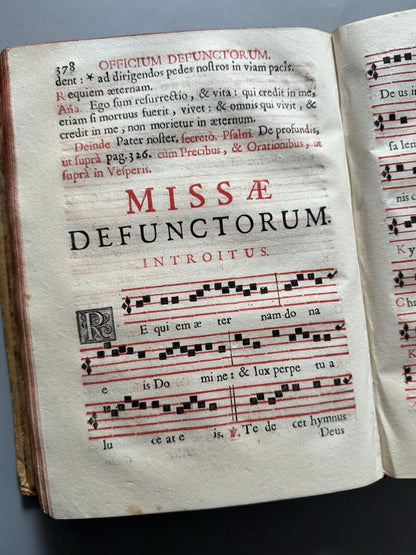 378 OFFICIUM DEFUNCTORUM.
dent: * ad dirigendos pedes nostros in viam pacis.
Requiem æternam.
Aña. Ego sum resurrectio, & vita: qui credit in me,
etiam si mortuus fuerit, vivet: & omnis qui vivit, &
credit in me, non morietur in æternum.
Deinde Pater noster, secretò. Psalm. De profundis,
ut suprà pag. 326. cùm Precibus, & Orationibus, ut
suprà in Vesperis.
MISSÆ
DEFUNCTORUM.
INTROITUS.
RE qui em æ ter nam do na
e is Do mi ne: & lux perpe tu a
lu ce at e is. ℣. Te de cet hymnus
Deus
De us in
sa lem
nis c
K
Ky
C
Ch
K